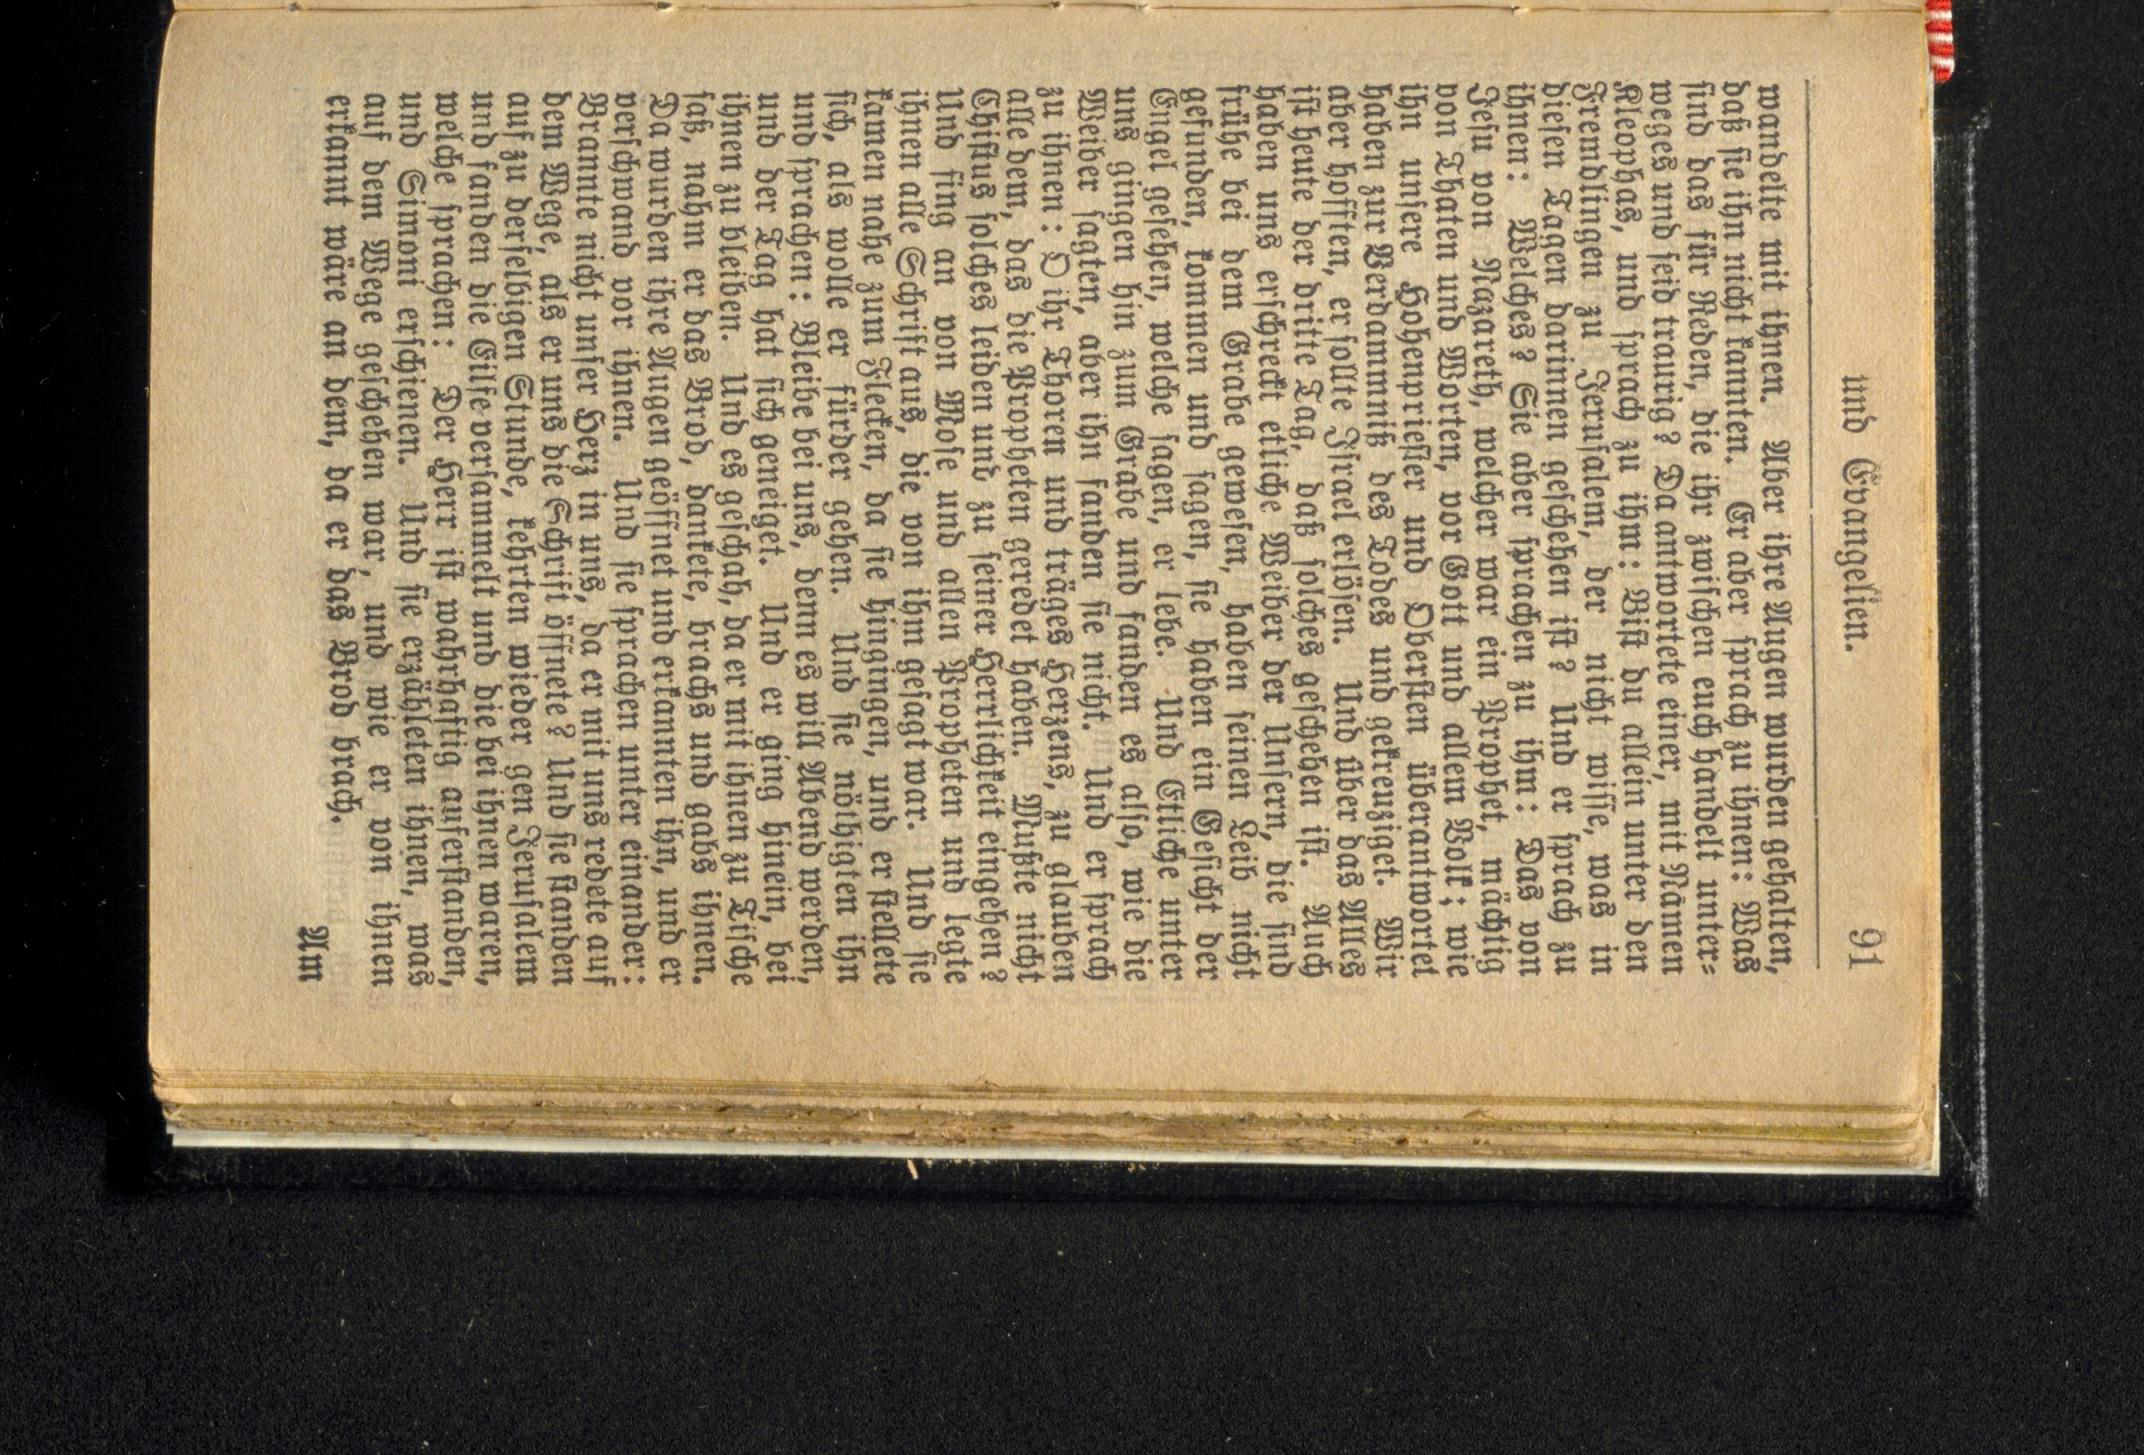 und Evangelien. 91
wandelte mit ihnen. Aber ihre Augen wurden gehalten,
daß sie ihn nicht kannten. Er aber sprach zu ihnen: Was
sind das für Reden, die ihr zwischen euch handelt unter-
weges und seid traurig? Da antwortete einer, mit Namen
Kleophas, und sprach zu ihm: Bist du allein unter den
Fremdlingen zu Jerusalem, der nicht wisse, was in
diesen Tagen darinnen geschehen ist? Und er sprach zu
ihnen: Welches? Sie aber sprachen zu ihm: Das von
Jesu von Nazareth, welcher war ein Prophet, mächtig
von Thaten und Worten, vor Gott und allem Volk; wie
ihn unsere Hohenpriester und Obersten überantwortet
haben zur Verdammniß des Todes und gekreuziget. Wir
aber hofften, er sollte Israel erlösen. Und über das Alles
ist heute der dritte Tag, daß solches geschehen ist. Auch
haben uns erschreckt etliche Weiber der Unsern, die sind
frühe bei dem Grabe gewesen, haben seinen Leib nicht
gefunden, kommen und sagen, sie haben ein Gesicht der
Engel gesehen, welche sagen, er lebe. Und Etliche unter
uns gingen hin zum Grabe und fanden es also, wie die
Weiber sagten, aber ihn fanden sie nicht. Und er sprach
zu ihnen: O ihr Thoren und träges Herzens, zu glauben
alle dem, das die Propheten geredet haben. Mußte nicht
Chistus solches leiden und zu seiner Herrlichkeit eingehen?
Und fing an von Mose und allen Propheten und legte
ihnen alle Schrift aus, die von ihm gesagt war. Und sie
kamen nahe zum Flecken, da sie hingingen, und er stellete
sich, als wolle er fürder gehen. Und sie nöthigten ihn
und sprachen: Bleibe bei uns, denn es will Abend werden,
und der Tag hat sich geneiget. Und er ging hinein, bei
ihnen zu bleiben. Und es geschah, da er mit ihnen zu Tische
saß, nahm er das Brod, dankete, brachs und gabs ihnen.
Da wurden ihre Augen geöffnet und erkannten ihn, und er
verschwand vor ihnen. Und sie sprachen unter einander:
Brannte nicht unser Herz in uns, da er mit uns redete auf
dem Wege, als er uns die Schrift öffnete? Und sie standen
auf zu derselbigen Stunde, kehrten wieder gen Jerusalem
und fanden die Eilfe versammelt und die bei ihnen waren,
welche sprachen: Der Herr ist wahrhaftig auferstanden,
und Simoni erschienen. Und sie erzähleten ihnen, was
auf dem Wege geschehen war, und wie er von ihnen
erkannt wäre an dem, da er das Brod brach.
Am